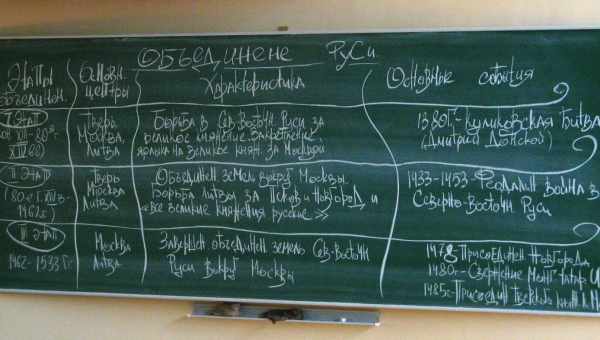 Объединене Руси
Этапы
объединен.
Основн.
центры
Характеристика
Основные события
I этап
XIV в)
Тверь,
Москва,
Литва
Борьба в Сев. Восточн. Руси за
великое княжение. Закрепление
ярлыка на великое княж. за Москвой
1380г - Куликовская битва
(Дмитрий Донской)
II этап
1462г)
Тверь
Москва
Литва
Объединен земель вокруг Москвы.
Борьба Литвы за Псков и Новгород и
«все великие княжения русские»
1433-1453 - Феодалин война в
Северно-Восточн Руси
III этап
1462-1533 гг
Москва
Литва
Завершен объединен земель Сев-Восточн
Руси вокруг Москвы
1478 Присоединен Новгорода
1480г - Свержение монг татар и
1485г - Присоедин Тверского княж к М